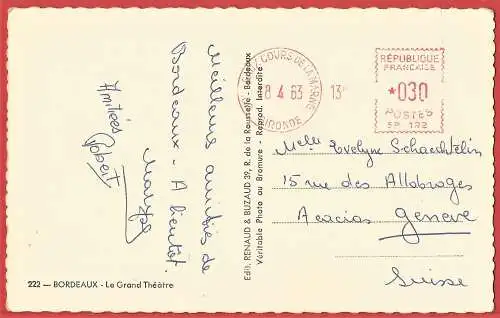 Meilleures amitiés de
Bordeaux - A bientôt.
Amitiés
Robert
222 — BORDEAUX - Le Grand Théâtre
Edit. RENAUD & BUZAUD 39, R. de la Rousselle - Bordeaux
Véritable Photo au Bromure - Reprod. Interdite
COURS DE LA MARNE
8 4 63 13
GIRONDE
RÉPUBLIQUE
FRANCAISE
*030
POSTES
Melle Evelyne Schaechtelin
15 rue des Allobroges
Acacias Genève
Suisse